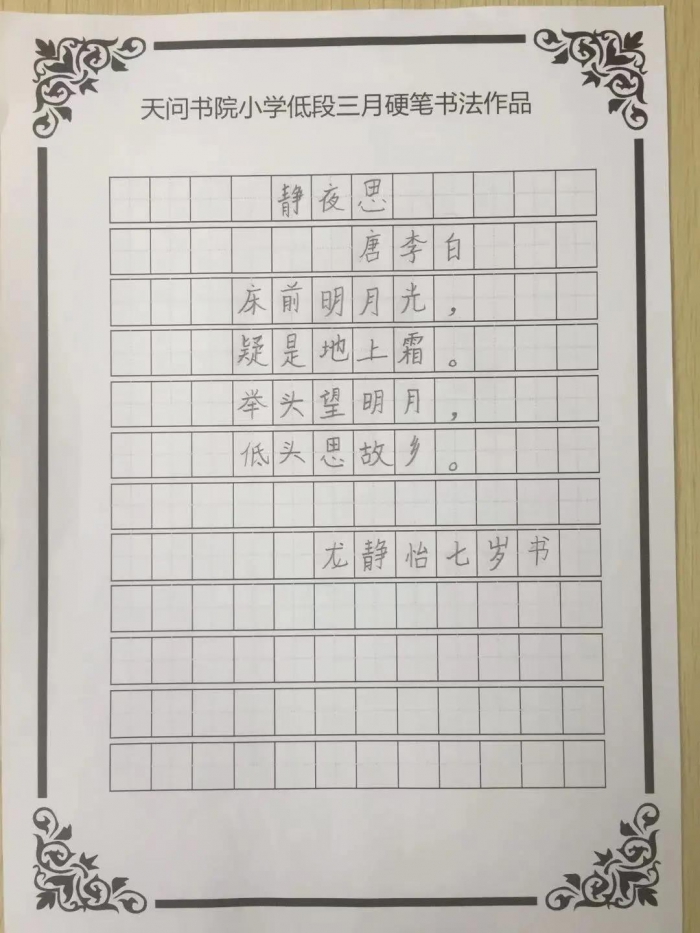 天问书院小学低段三月硬笔书法作品
静夜思
唐李白
床前明月光，
疑是地上霜。
举头望明月，
低头思故乡。
尤静怡七岁书